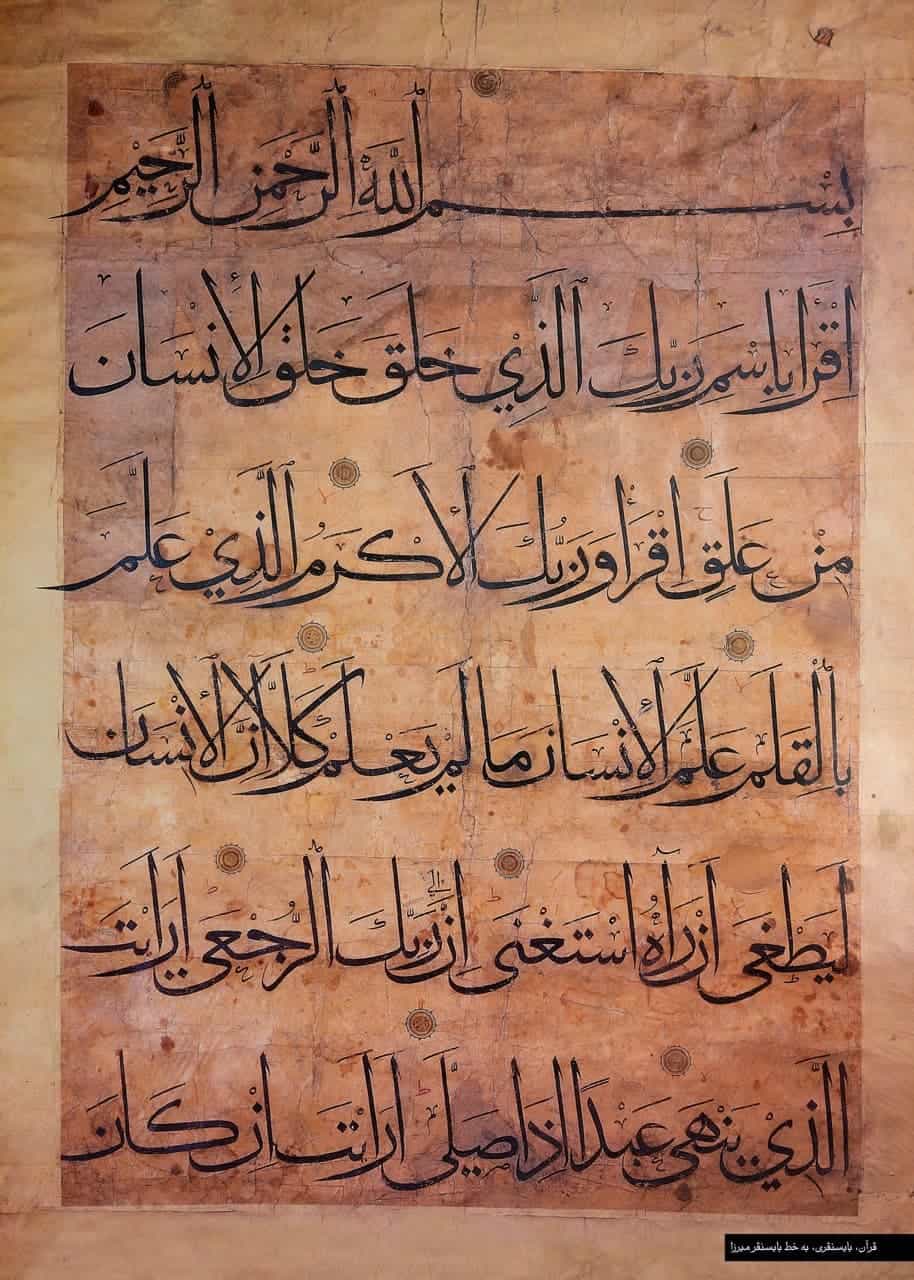 بِسْمِ اللَّهِ الرَّحْمَنِ الرَّحِيمِ
اِقْرَأْ بِاسْمِ رَبِّكَ الَّذِيْ خَلَقَ خَلَقَ الْإِنْسَانَ
مِنْ عَلَقٍ اقْرَأْ وَرَبُّكَ الْأَكْرَمُ الَّذِيْ عَلَّمَ
بِالْقَلَمِ عَلَّمَ الْإِنْسَانَ مَا لَمْ يَعْلَمْ كَلَّا إِنَّ الْإِنْسَانَ
لَيَطْغَى أَنْ رَآهُ اسْتَغْنَى إِنَّ إِلَى رَبِّكَ الرُّجْعَى أَرَأَيْتَ
الَّذِيْ يَنْهَى عَبْدًا إِذَا صَلَّى أَرَأَيْتَ إِنْ كَانَ
قرآن، بایسنقری، به خط بایسنقر میرزا